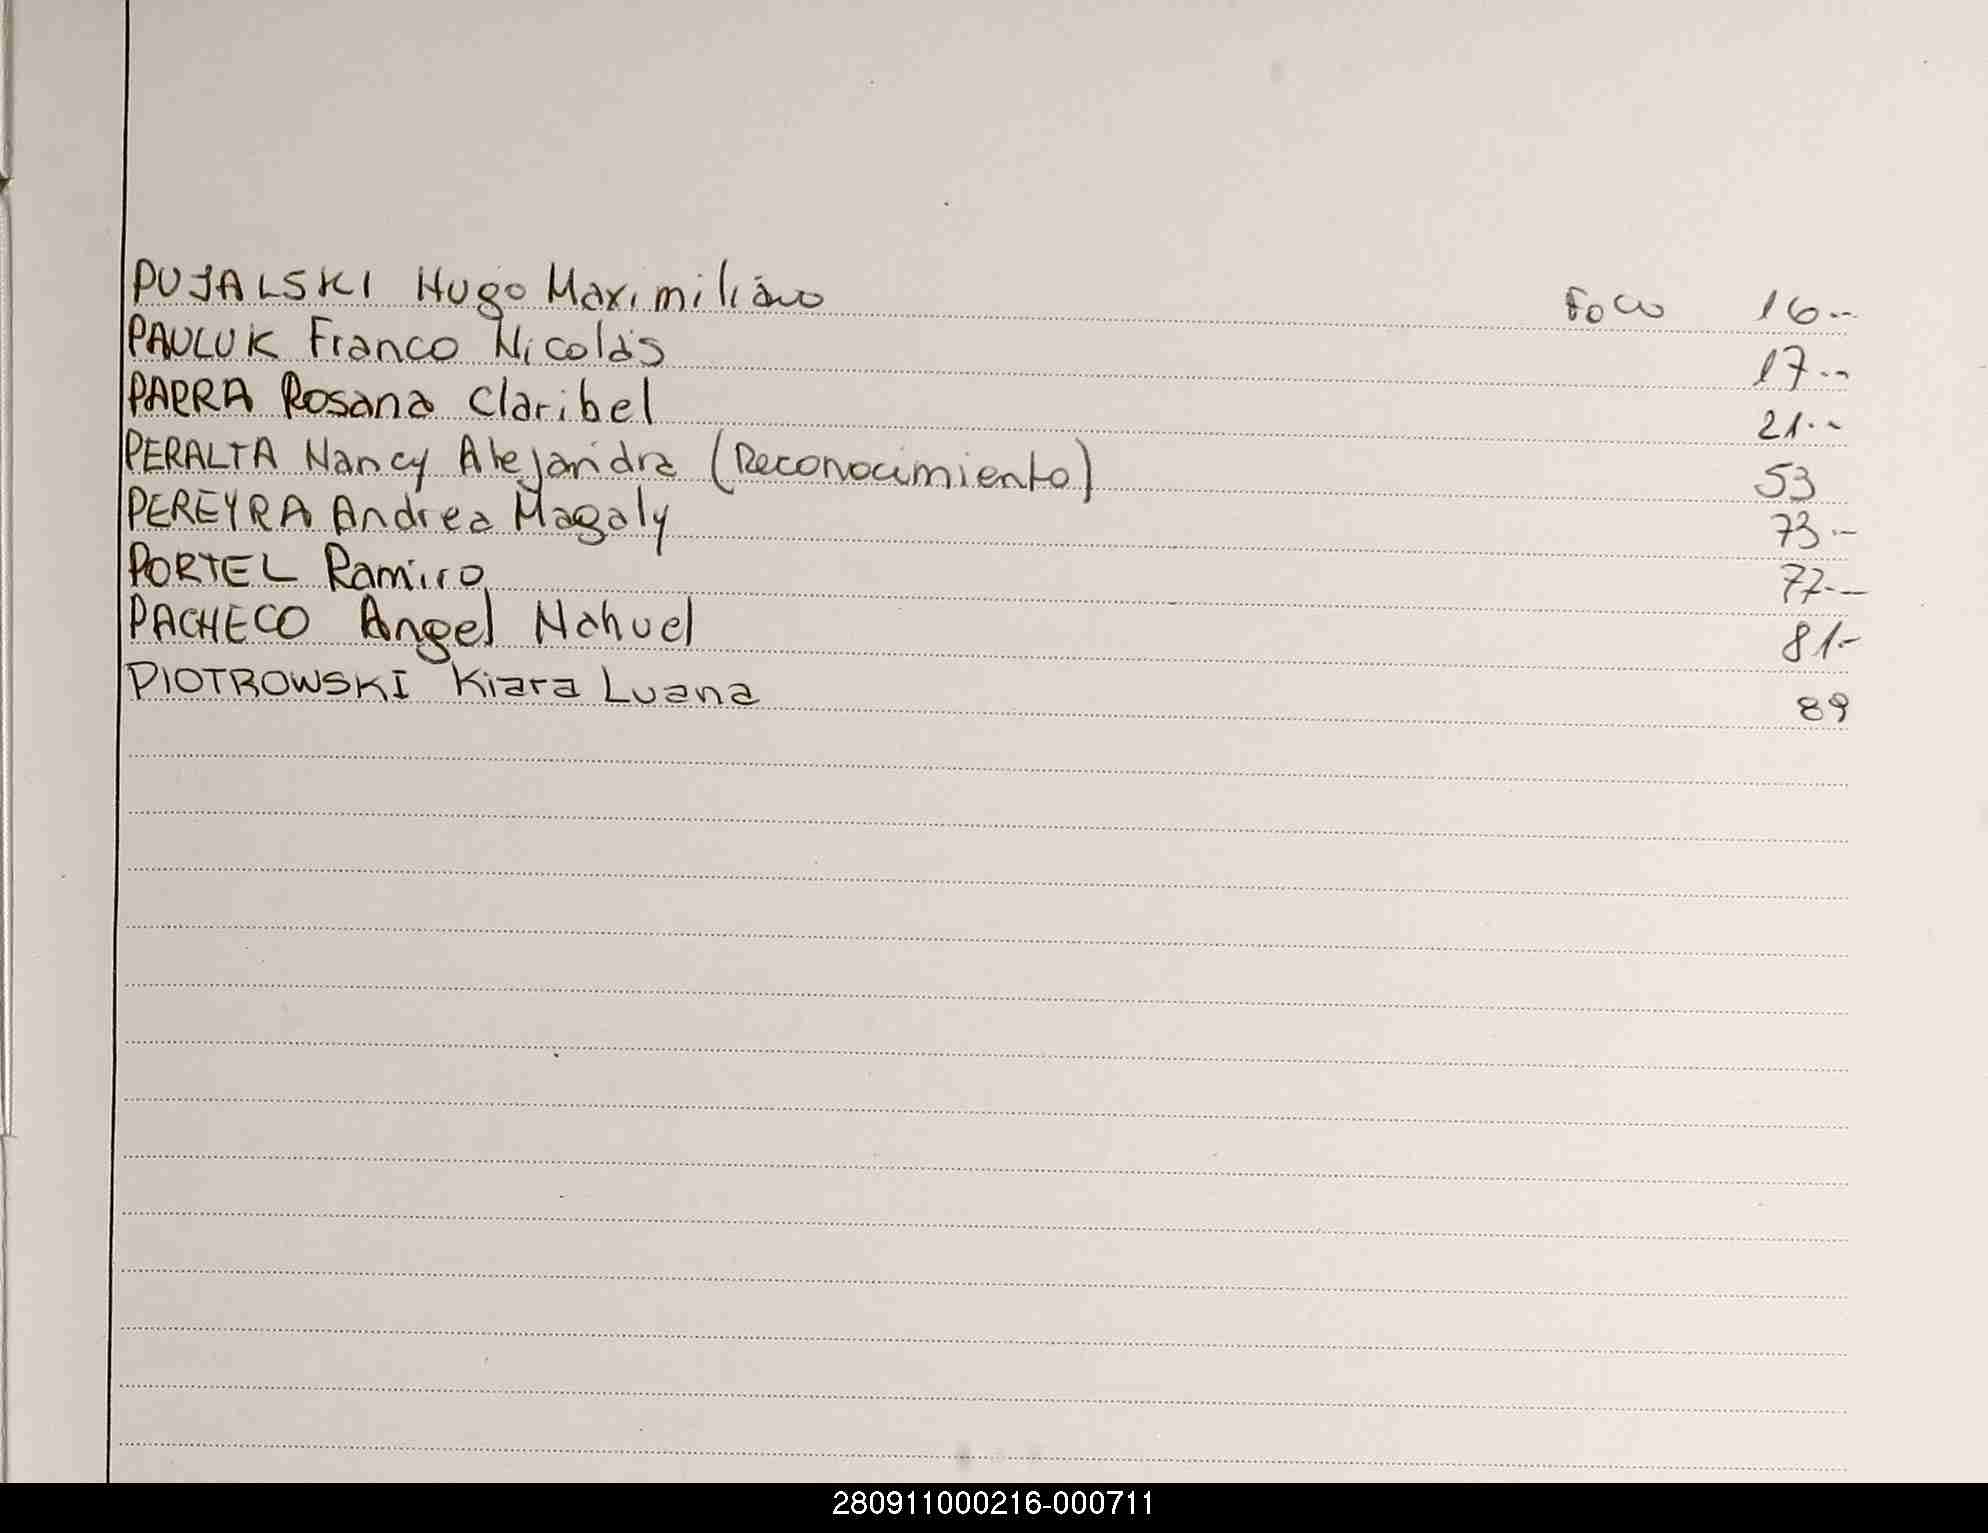 PUJALSKI Hugo Maximiliano Foco 16--
PAULUK Franco Nicolás 17--
PARRA Rosana Claribel 21--
PERALTA Nancy Alejandra (Reconocimiento) 53
PEREYRA Andrea Magaly 73--
PORTEL Ramiro 77--
PACHECO Angel Nahuel 81-
PIOTROWSKI Kiara Luana 89
280911000216-000711